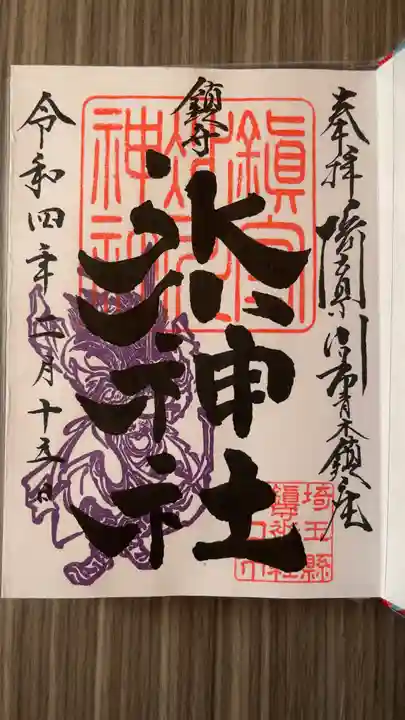 奉拝 埼玉県川口市青木鎮座
鎮守
氷川神社
令和四年二月十五日
鎮守
氷川
神社
埼玉縣